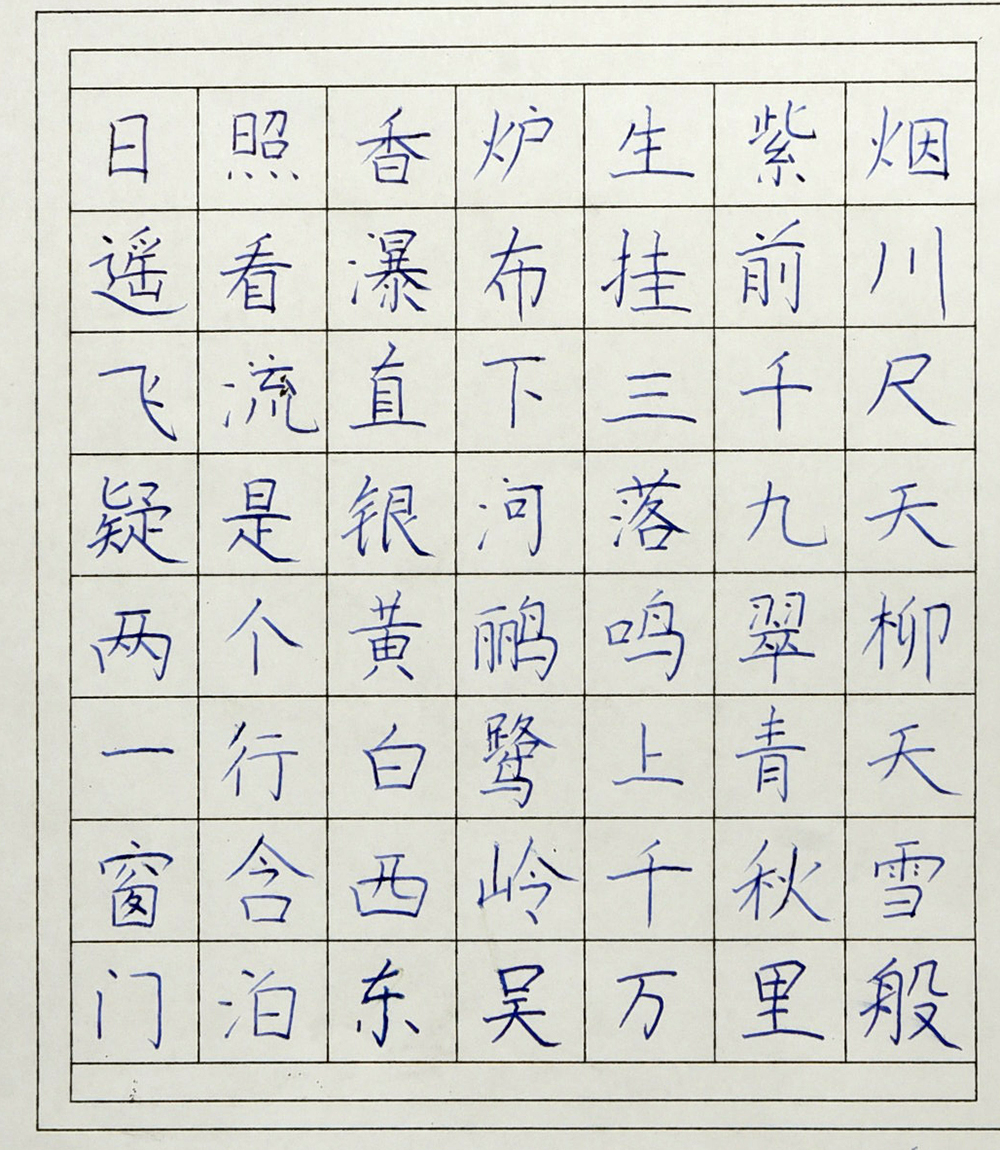 日照香炉生紫烟
遥看瀑布挂前川
飞流直下三千尺
疑是银河落九天
两个黄鹂鸣翠柳
一行白鹭上青天
窗含西岭千秋雪
门泊东吴万里般